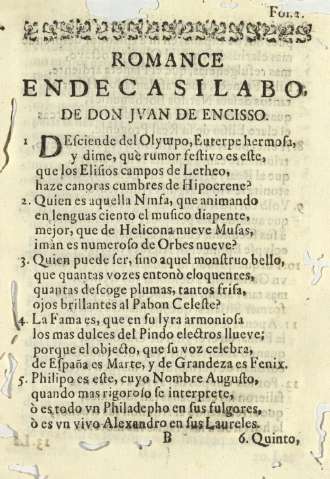 Fol. 2.
ROMANCE
ENDECASILABO,
DE DON JVAN DE ENCISSO.
1 DEsciende del Olympo, Euterpe hermosa,
y dime, què rumor festivo es este,
que los Elisios campos de Letheo,
haze canoras cumbres de Hipocrene?
2. Quien es aquella Ninfa, que animando
en lenguas ciento el musico diapente,
mejor, que de Helicona nueve Musas,
imàn es numeroso de Orbes nueve?
3. Quien puede ser, sino aquel monstruo bello,
que quantas vozes entonò eloquentes,
quantas descoge plumas, tantos frisa,
ojos brillantes al Pabon Celeste?
4. La Fama es, que en su lyra armoniosa
los mas dulces del Pindo electros llueve;
porque el objecto, que su voz celebra,
de España es Marte, y de Grandeza es Fenix.
5. Philipo es este, cuyo Nombre Augusto,
quando mas rigoroso se interprete,
ò es todo vn Philadepho en sus fulgores,
ò es vn vivo Alexandro en sus Laureles.
B 6. Quinto,